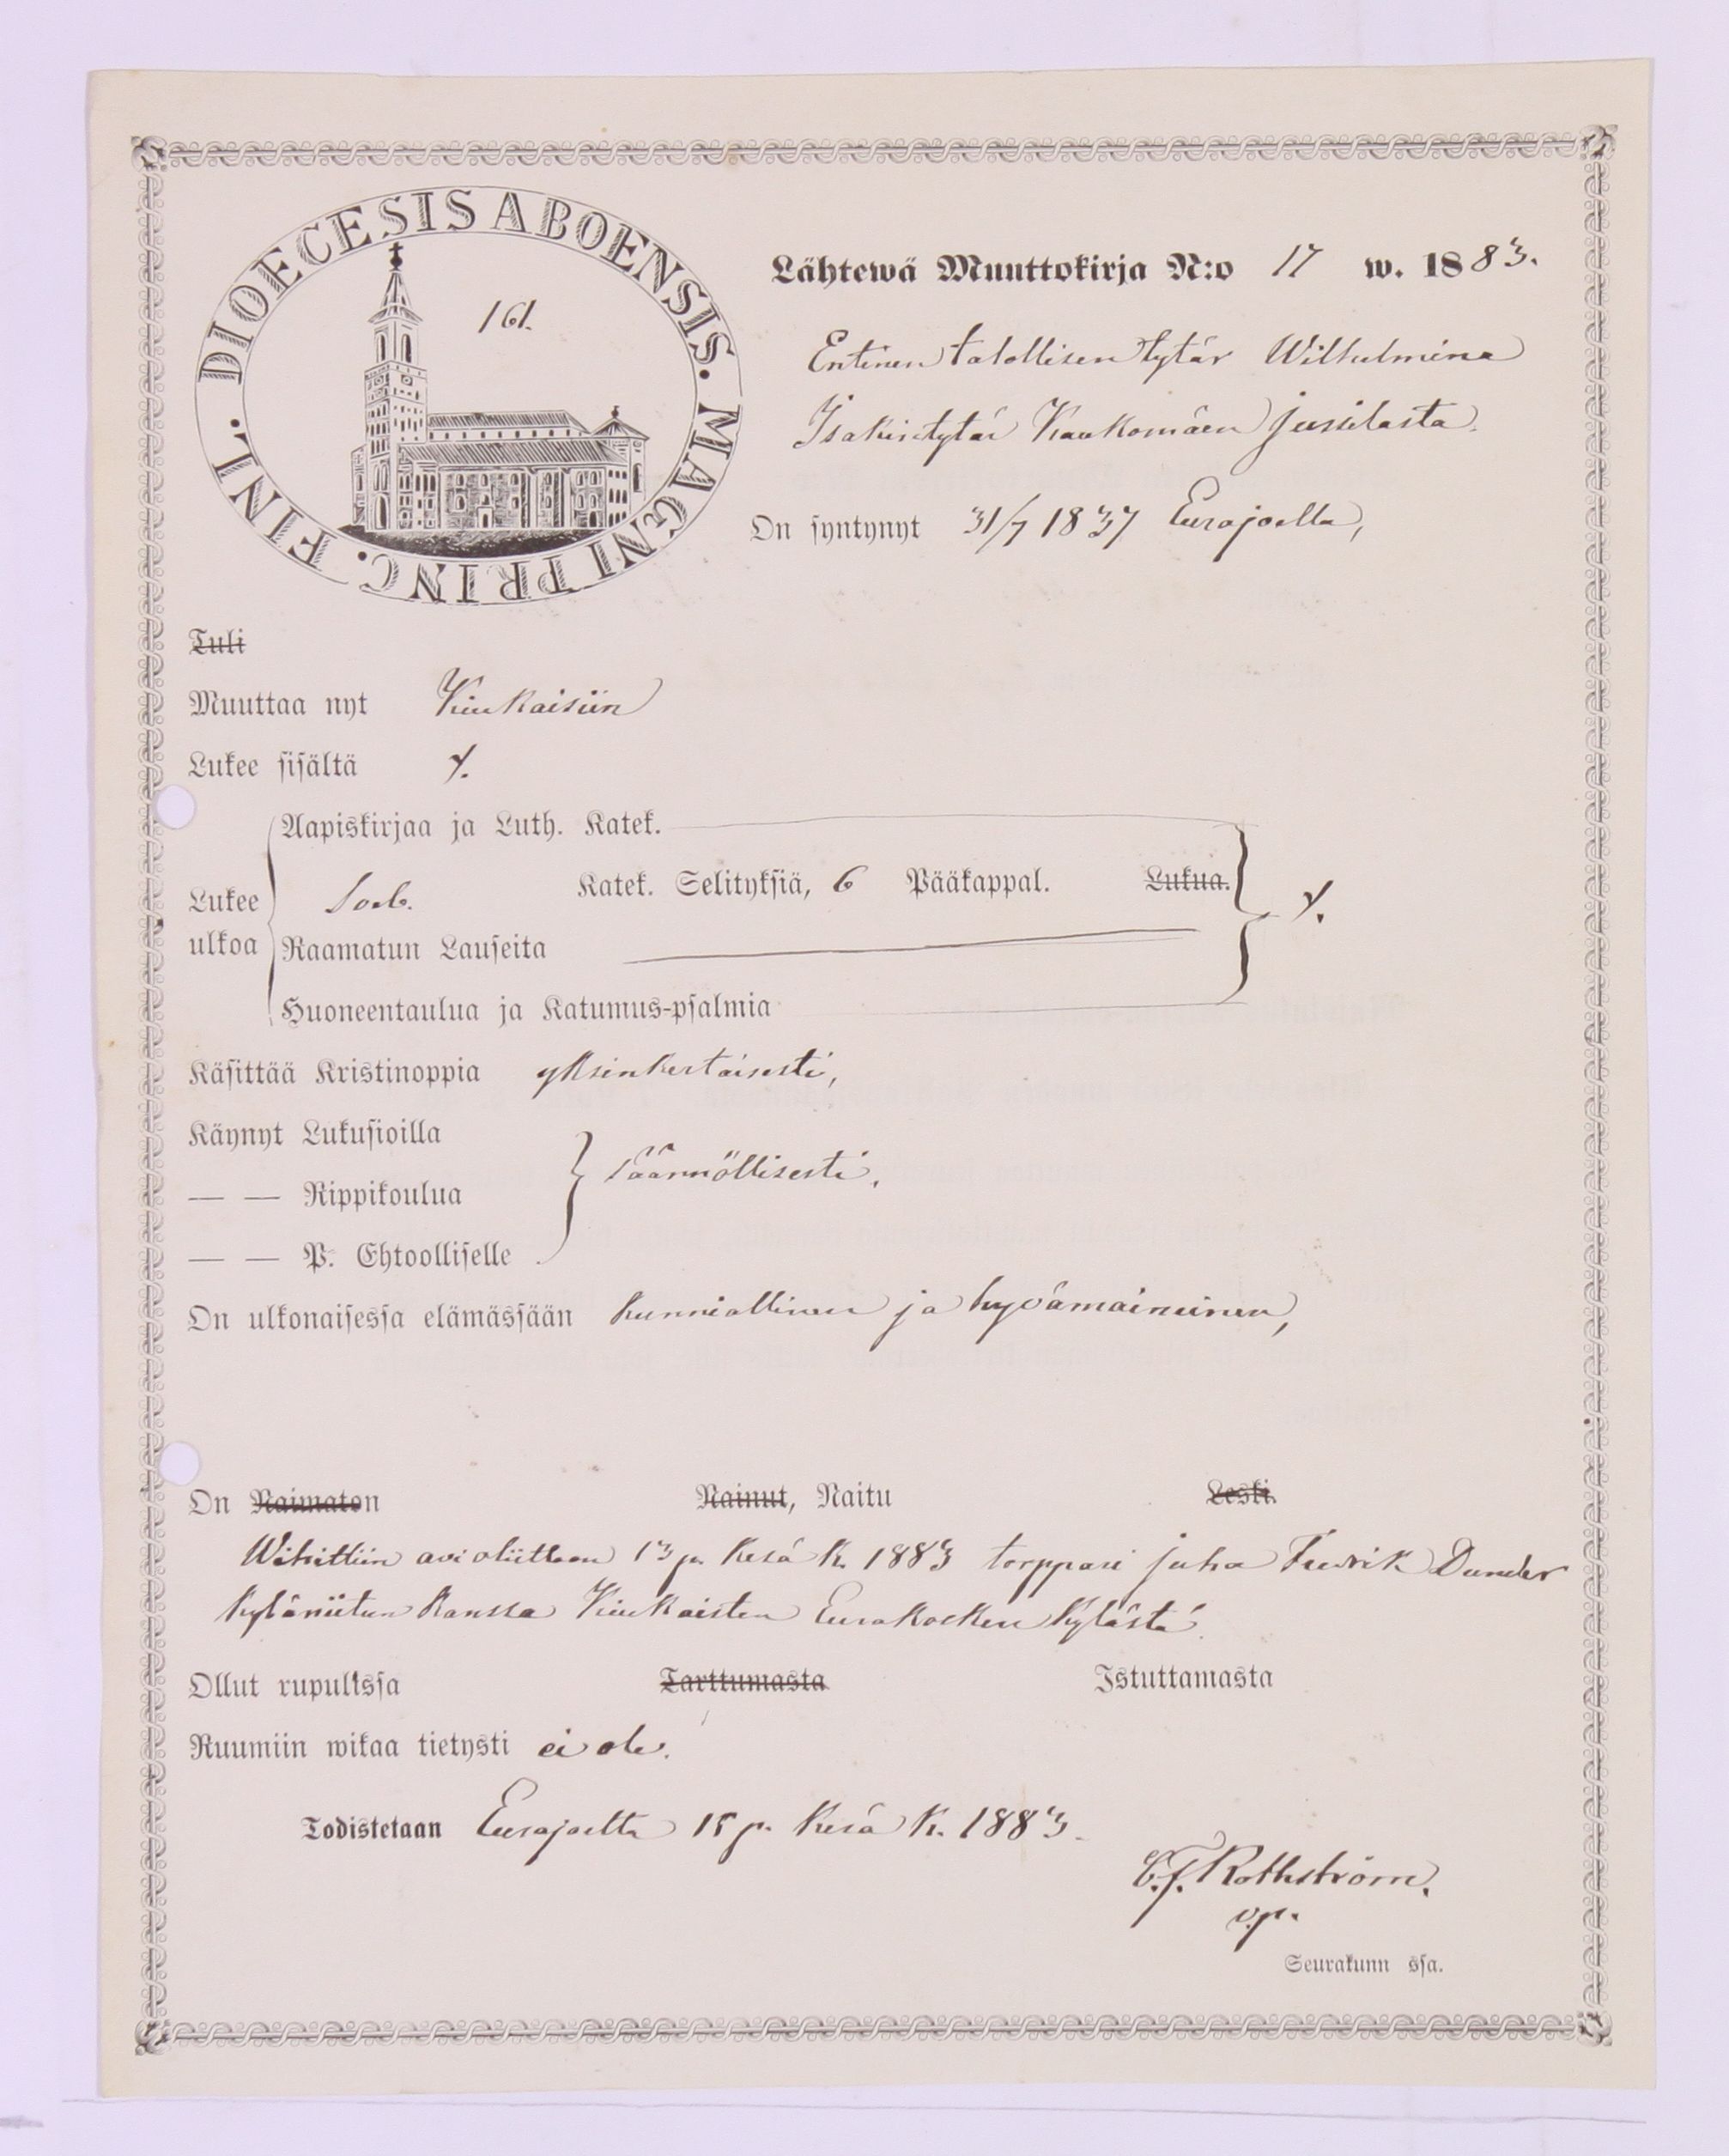 DIOECESIS ABOENSIS. MAGNI PRINC. FINL.
161.
Lähtewä Muuttokirja N:o 17 w. 1883.
Entinen talollisen tytär Wilhelmina
Isakintytär Kaukomäen Jussilasta.
On syntynyt 31/7 1837 Eurajoella,
Tuli
Muuttaa nyt Kiukaisiin
Lukee sisältä y.
Aapiskirjaa ja Luth. Katek.
Lukee ulkoa Sveb. Katek. Selityksiä, 6 Pääkappal. Lukua. y.
Raamatun Lauseita
Huoneentaulua ja Katumus-psalmia
Käsittää Kristinoppia yksinkertaisesti,
Käynyt Lukusioilla
— — Rippikoulua säännöllisesti,
— — P. Ehtoolliselle
On ulkonaisessa elämässään kunniallinen ja hyvämaineinen,
On Naimaton Nainut, Naitu Leski.
Wihittiin avioliittoon 13 p. Kesä K. 1883 torppari Juha Fredrik Dunder
Kyläniitun kanssa Kiukaisten Eurakosken kylästä.
Ollut rupulissa Tarttumasta Istuttamasta
Ruumiin wikaa tietysti ei ole.
Todistetaan Eurajoelta 15 p. Kesä K. 1883.
C.F. Rothström.
v.p.
Seurakunn ssa.